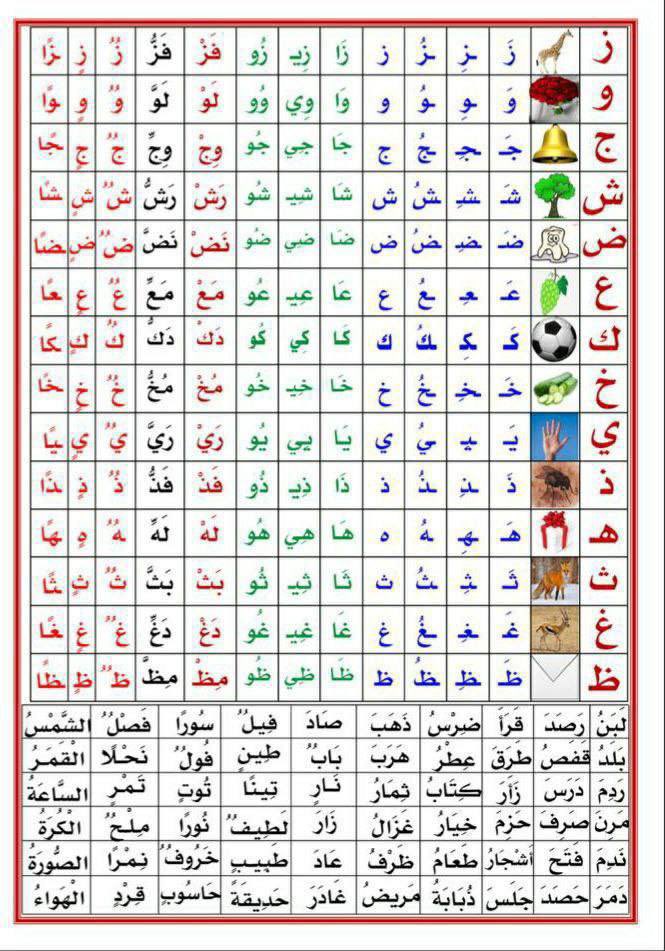 ز زَ ـزِ ـزُ ز زَا زِيـ زُو فَزْ فَزُّ زٌ زٍ ـزًا
و وَ ـوِ ـوُ و وَا وِي وُو لَوْ لَوَّ وٌ وٍ ـوًا
ج جَـ ـجِـ ـجُ ج جَا جِي جُو وِجْ وِجِّ جٌ جٍ ـجًا
ش شَـ ـشِـ ـشُ ش شَا شِيـ شُو رَشْ رَشُّ شٌ شٍ ـشًا
ض ضَـ ـضِـ ـضُ ض ضَا ضِي ضُو نَضْ نَضَّ ضٌ ضٍ ـضًا
ع عَـ ـعِـ ـعُ ع عَا عِيـ عُو مَعْ مَعِّ عٌ عٍ ـعًا
ك كَـ ـكِـ ـكُ ك كَا كِي كُو دَكْ دَكُّ كٌ كٍ ـكًا
خ خَـ ـخِـ ـخُ خ خَا خِيـ خُو مُخْ مُخُّ خٌ خٍ ـخًا
ي يَـ ـيِـ ـيُ ي يَا يِي يُو رَيْ رَيَّ يٌ يٍ ـيًا
ذ ذَ ـذِ ـذُ ذ ذَا ذِيـ ذُو فَذْ فَذُّ ذٌ ذٍ ـذًا
هـ هَـ ـهِـ ـهُ ه هَا هِي هُو لَهْ لَهِّ هٌ هٍ ـهًا
ث ثَـ ـثِـ ـثُ ث ثَا ثِيـ ثُو بَثْ بَثَّ ثٌ ثٍ ـثًا
غ غَـ ـغِـ ـغُ غ غَا غِيـ غُو دَغْ دَغِّ غٌ غٍ ـغًا
ظ ظَـ ـظِـ ـظُ ظ ظَا ظِي ظُو مِظْ مِظَّ ظٌ ظٍ ـظًا
لَبَنُ رَصَدَ قَرَأَ ضِرْسُ ذَهَبَ صَادَ فِيلٌ سُورًا فَصْلٌ الشَّمْسُ
بَلَدُ قَفَصُ طَرَقَ عِطْرُ هَرَبَ بَابٌ طِينٍ فُولٌ نَحْلًا الْقَمَرُ
رَدِمَ دَرَسَ زَأَرَ كِتَابُ ثِمَارُ نَارٍ تِينًا تُوتٍ تَمْرٍ السَّاعَةُ
مَرِنَ صَرَفَ حَزِمَ خِيَارُ غَزَالُ زَارَ لَطِيفٌ نُورًا مِلْحٌ الْكُرَةُ
نَدِمَ فَتَحَ أَشْجَارُ طَعَامُ ظَرْفُ عَادَ طَبِيبٍ خَرُوفٌ نِمْرًا الصُّورَةُ
دَمَرَ حَصَدَ جَلَسَ ذُبَابَةُ مَرِيضُ غَادَرَ حَدِيقَةٌ حَاسُوبٍ قِرْدٍ الْهَوَاءُ